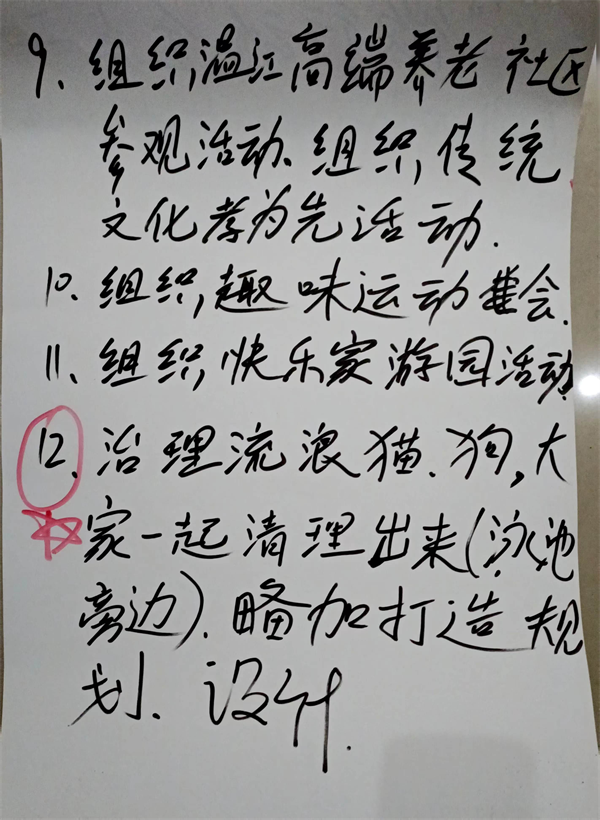 9、组织温江高端养老社区
参观活动、组织传统
文化孝为先活动.
10、组织趣味运动会.
11、组织快乐家游园活动
12、治理流浪猫、狗,大
家一起清理出来(泳池
旁边)、略加打造规
划、设计.